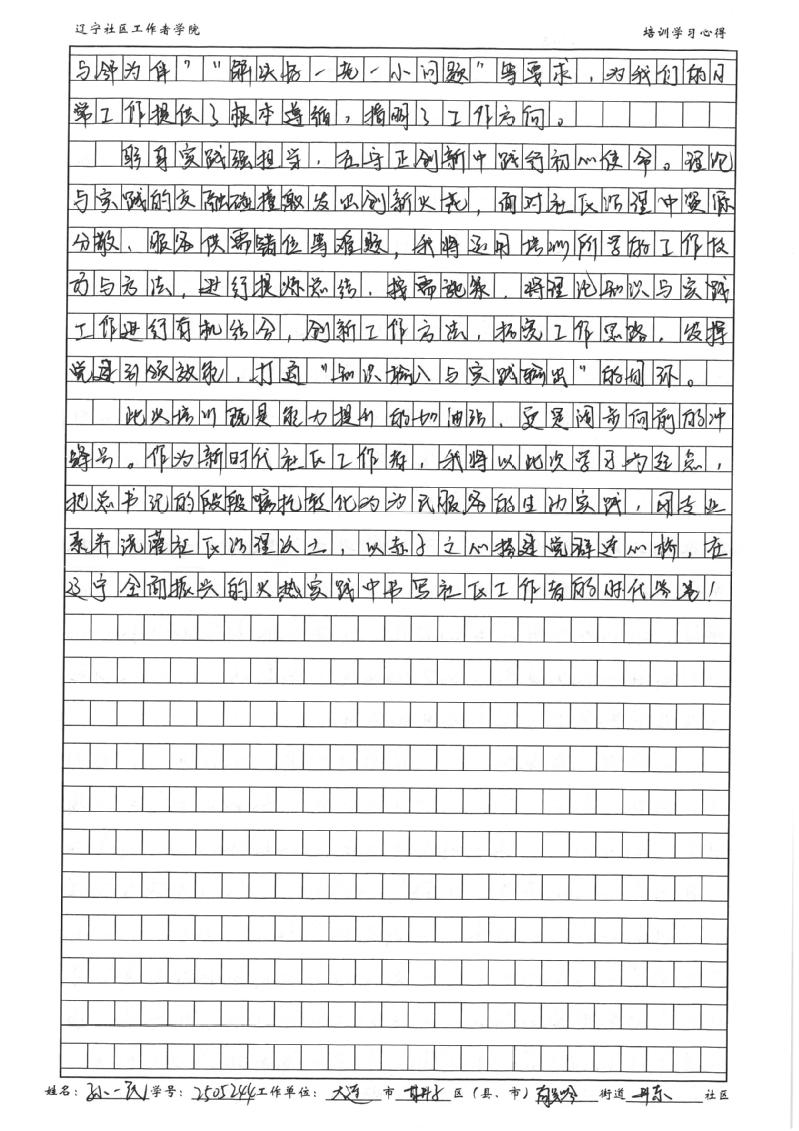 辽宁社区工作者学院 培训学习心得
与邻为伴”“解决好一老一小问题”等要求，为我们的日
常工作提供了根本遵循，指明了工作方向。
联身实践强担当，在守正创新中践行初心使命。理论
与实践的交融碰撞激发出创新火花，面对社区治理中资源
分散、服务供需错位等难题，我将运用培训所学的工作技
巧与方法，进行提炼总结，按需施策，将理论知识与实践
工作进行有机结合，创新工作方法，拓宽工作思路，发挥
党建引领效能，打通“知识输入与实践输出”的闭环。
此次培训既是能力提升的加油站，更是阔步向前的冲
锋号。作为新时代社区工作者，我将以此次学习为起点，
把总书记的段段嘱托转化为为民服务的生动实践，用专业
素养浇灌社区治理沃土，以赤子之心搭建党群连心桥，在
辽宁全面振兴的火热实践中书写社区工作者的时代答卷！
姓名：孙一 学号：2505244 工作单位：大连 市 甘井子 区（县、市） 街道 社区